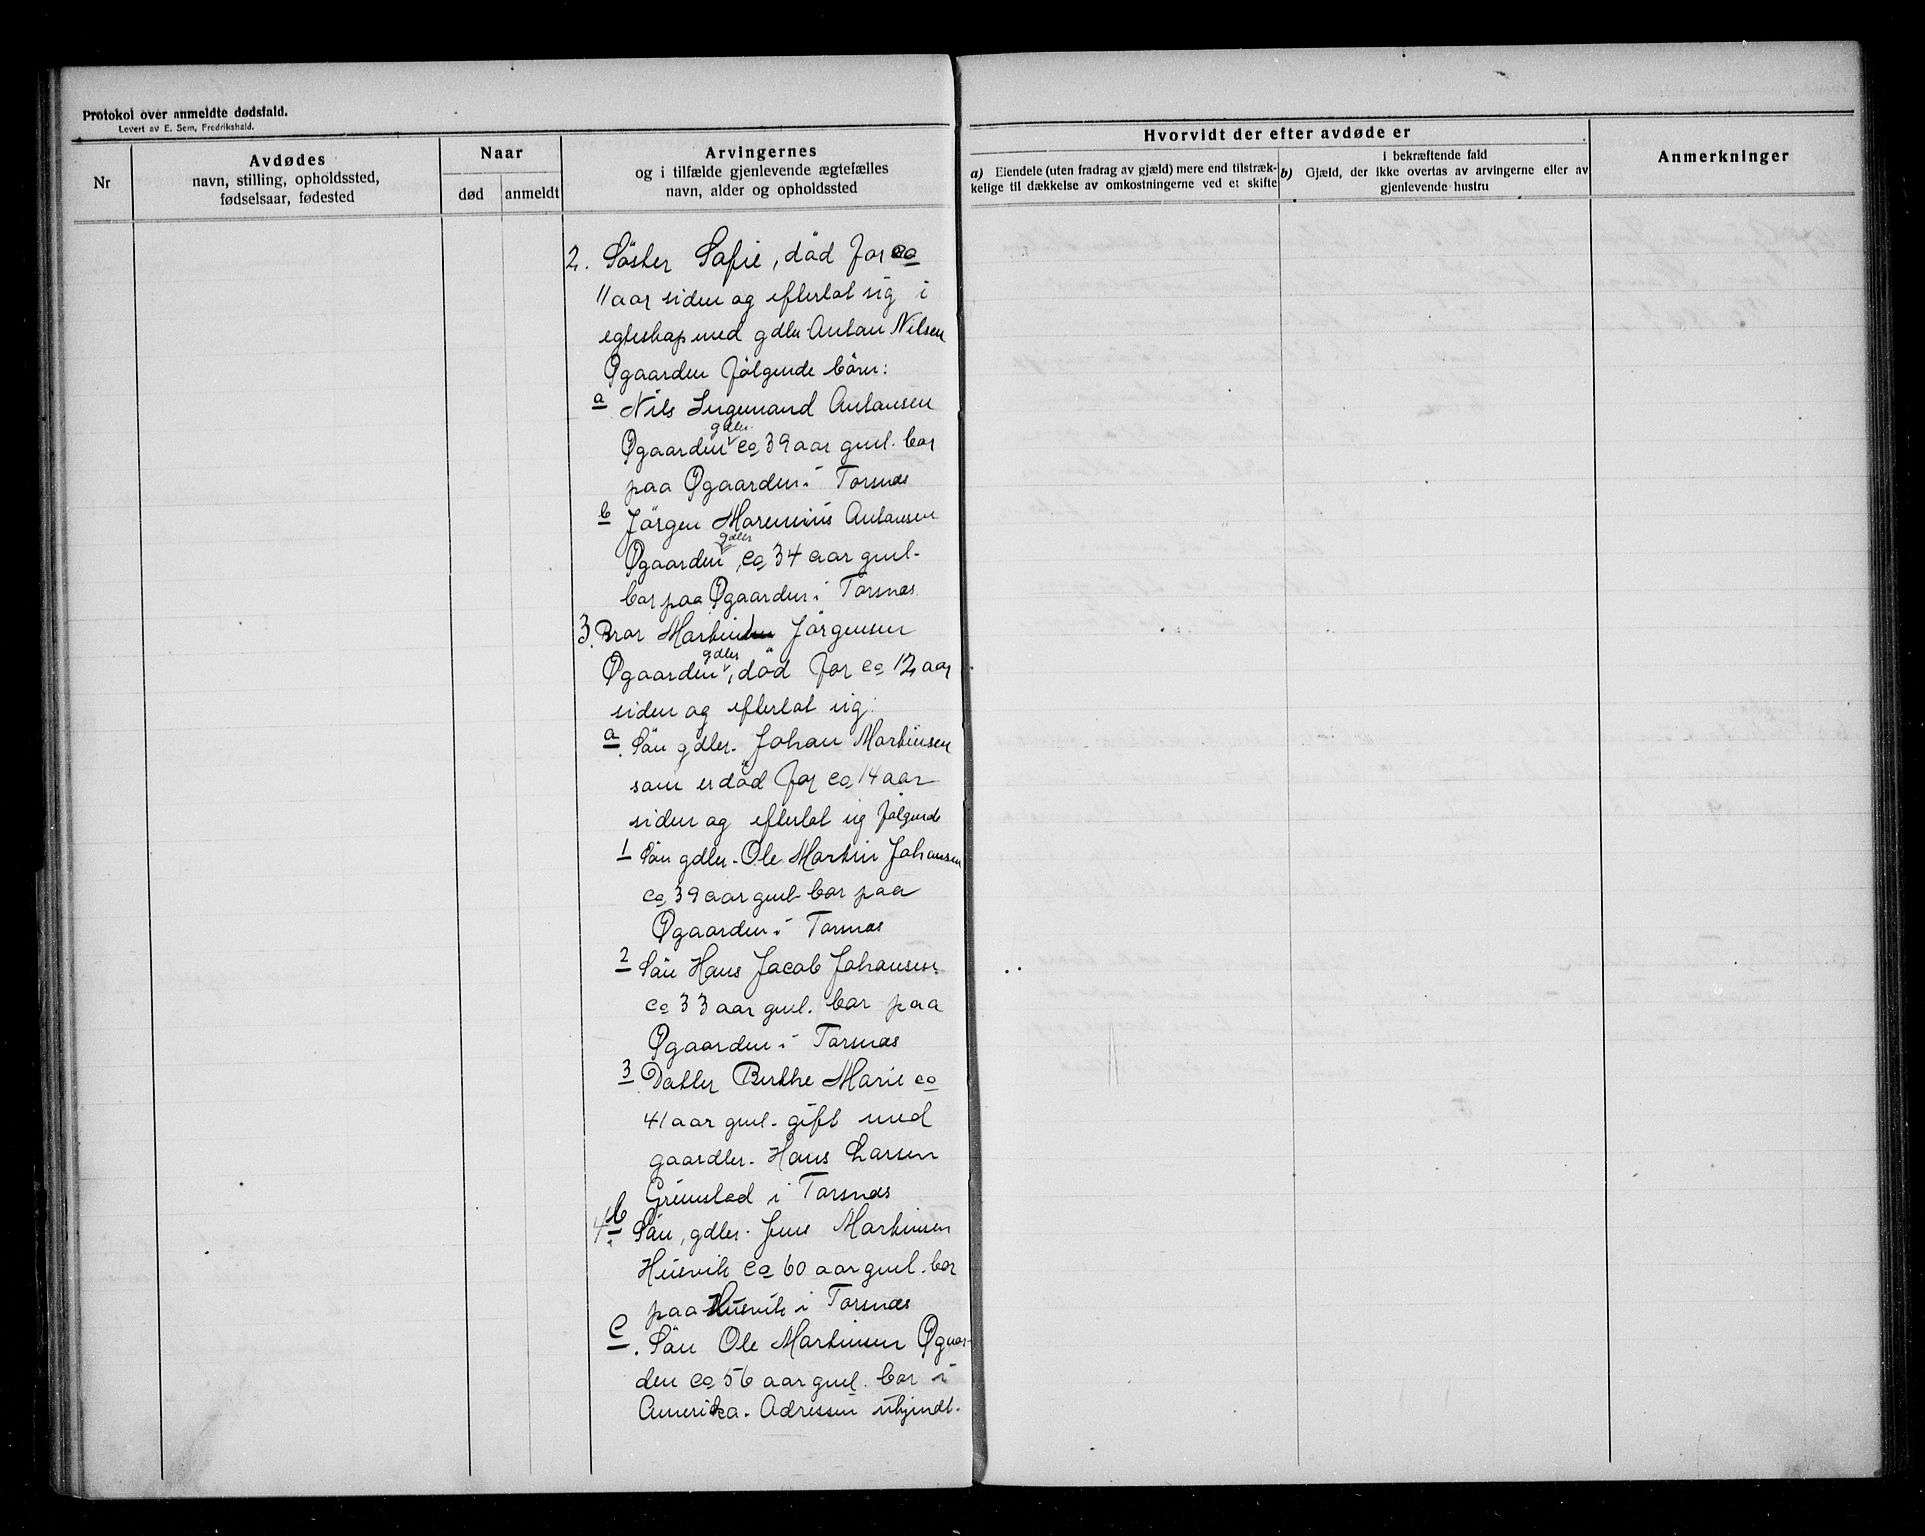 Protokol over anmeldte dødsfald.
Levert av E. Sem, Fredrikshald.
Nr
Avdødes
navn, stilling, opholdssted,
fødselsaar, fødested
Naar
død
anmeldt
Arvingernes
og i tilfælde gjenlevende ægtefælles
navn, alder og opholdssted
Hvorvidt der efter avdøde er
a) Eiendele (uten fradrag av gjæld) mere end tilstræk-
kelige til dækkelse av omkostningerne ved et skifte
i bekræftende fald
b) Gjæld, der ikke overtas av arvingerne eller av
gjenlevende hustru
Anmerkninger
2. Söster Sofie, död for ca
11 aar siden og efterlot sig i
egteskap med gdbr Anton Nilsen
Øgaarden følgende börn:
a Nils Ingemand Antonsen
gdbr.
Øgaarden ca 39 aar gml. bor
paa Øgaarden i Torsnæs
b Jörgen Marenius Antonsen
gdbr
Øgaarden, ca 34 aar gml.
bor paa Øgaarden i Torsnæs
3. Bror Martin Jörgensen
gdbr
Øgaarden, död for ca 12 aar
siden og efterlot sig:
a. Sön gdbr. Johan Martinsen
som er död for ca 14 aar
siden og efterlot sig følgende
1 Sön gdbr. Ole Martin Johansen
ca 39 aar gml. bor paa
Øgaarden i Torsnæs
2 Sön Hans Jacob Johansen
ca 33 aar gml. bor paa
Øgaarden i Torsnæs
3 Datter Berthe Marie ca
41 aar gml. gift med
gaardbr. Hans Larsen
Grimstad i Torsnæs
b Sön, gdbr. Jens Martinsen
Husvik ca 60 aar gml. bor
paa Husvik i Torsnæs
c. Sön Ole Martinsen Øgaar-
den ca 56 aar gml. bor i
Amerika. Adressen ukjendt.